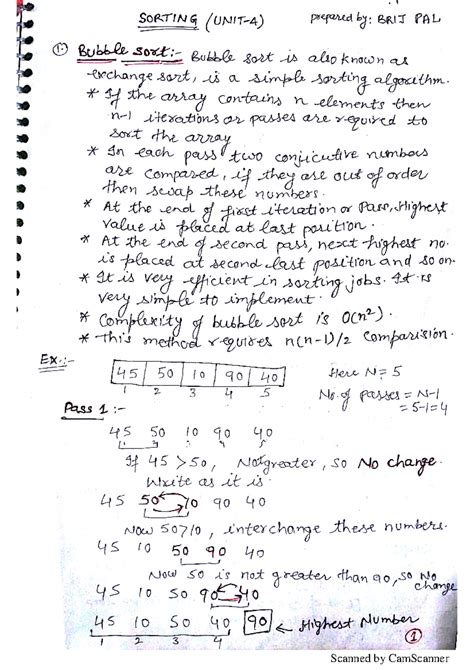 SORTING (UNIT-4) prepared by: BRIJ PAL
① Bubble sort:- Bubble sort is also known as
exchange sort, is a simple sorting algorithm.
* If the array contains n elements then
n-1 iterations or passes are required to
sort the array
* In each pass two conjicutive numbers
are compared, if they are out of order
then swap these numbers.
* At the end of first iteration or Pass, Highest
value is placed at last position.
* At the end of second pass, next highest no.
is placed at second last position and so on.
* It is very efficient in sorting jobs. It is
very simple to implement.
* Complexity of bubble sort is O(n²).
* This method requires n(n-1)/2 comparision.
Ex:- 45 50 10 90 40 Here N=5
1 2 3 4 5 No. of passes = N-1
= 5-1=4
Pass 1:-
45 50 10 90 40
If 45 > 50, Not greater, so No change.
Write as it is.
45 50 10 90 40
Now 50>10, interchange these numbers.
45 10 50 90 40
Now 50 is not greater than 90, so No
change
45 10 50 90 40
45 10 50 40 90 ← Highest Number
1 2 3 4
①
Scanned by CamScanner